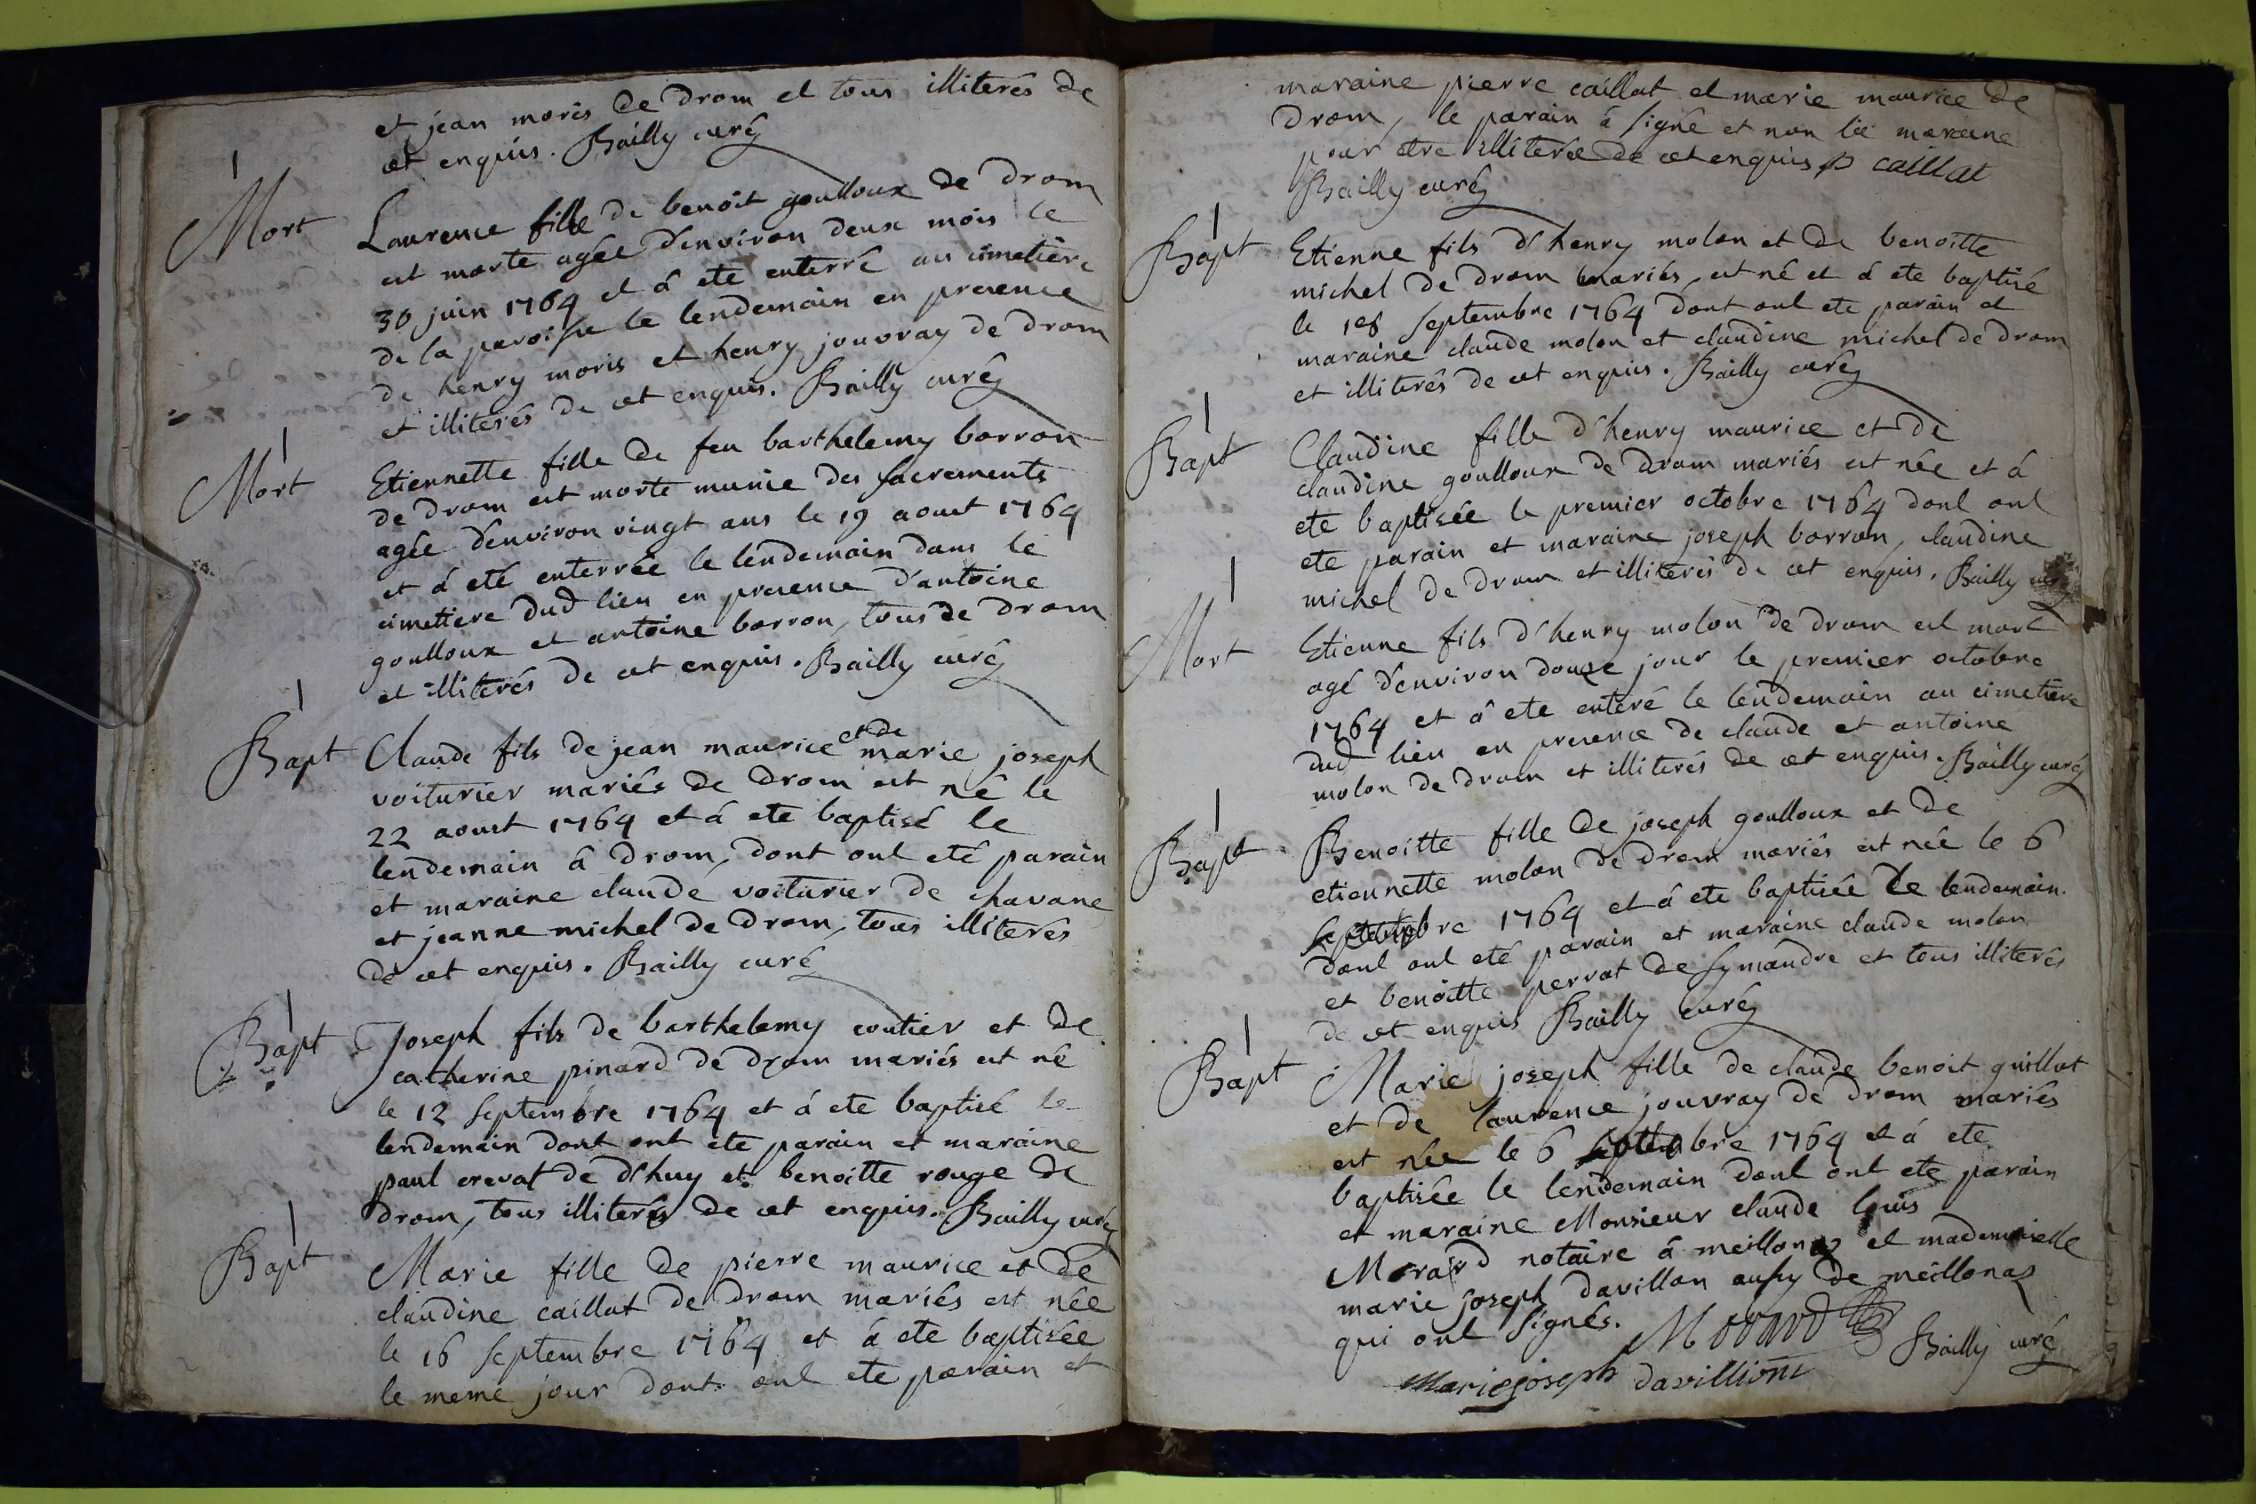 et jean moris de drom et tous illiterés de
cet enquis. Bailly curé
Mort
Laurence fille de benoit goulloux de drom
est morte agée d'environ deux mois le
30 juin 1764 et á ete enterré au cimetiere
de la paroisse le lendemain en presence
de henry moris et henry jouvray de drom
et illiterés de cet enquis. Bailly curé
Mort
Etiennette fille de feu barthelemy borron
de drom est morte munie des sacrements
agée d'environ vingt ans le 19 aoust 1764
et á eté enterrée le lendemain dans le
cimettiere dud lieu en presence d'antoine
goulloux et antoine borron, tous de drom
et illiterés de cet enquis. Bailly curé
Bapt
Claude fils de jean maurice et de marie joseph
voiturier mariés de drom est né le
22 aoust 1764 et á ete baptisé le
lendemain á drom, dont ont eté parain
et maraine claude voiturier de chavane
et jeanne michel de drom, tous illiterés
de cet enquis. Bailly curé
Bapt
Joseph fils de barthelemy coutier et de
catherine pinard de drom mariés est né
le 12 septembre 1764 et á ete baptisé le
lendemain dont ont ete parain et maraine
paul crevat de d'huy et benoitte rouge de
drom, tous illiterés de cet enquis. Bailly curé
Bapt
Marie fille de pierre maurice et de
claudine caillat de drom mariés est née
le 16 septembre 1764 et á ete baptisée
le meme jour dont ont ete parain et
maraine pierre caillat et marie maurice de
drom, le parain á signé et non la maraine
pour etre illiterée de cet enquis P caillat
Bailly curé
Bapt
Etienne fils d'henry molon et de benoitte
michel de drom mariés, est né et á ete baptisé
le 18 septembre 1764 dont ont ete parain et
maraine claude molon et claudine michel de drom
et illiterés de cet enquis. Bailly curé
Bapt
Claudine fille d'henry maurice et de
claudine goulloux de drom mariés est née et á
ete baptisée le premier octobre 1764 dont ont
ete parain et maraine joseph borron, claudine
michel de drom et illiterés de cet enquis. Bailly curé
Mort
Etienne fils d'henry molon de drom est mort
agé d'environ douze jour le premier octobre
1764 et á ete enteré le lendemain au cimetiere
dud lieu en presence de claude et antoine
molon de drom et illiterés de cet enquis. Bailly curé
Bapt
Benoitte fille de joseph goulloux et de
etiennette molon de drom mariés est née le 6
bre 1764 et á ete baptisée le lendemain.
dont ont eté parain et maraine claude molon
et benoitte perrat de symandre et tous illiterés
de cet enquis Bailly curé
Bapt
Marie joseph fille de claude benoit guillot
et de laurence jouvray de drom mariés
est née le 6 bre 1764 et á ete
baptisée le lendemain dont ont ete parain
et maraine Monsieur claude louis
Morard notaire á meillonas et mademoiselle
marie joseph davillon aussy de meillonas
qui ont signés. Morard
Bailly curé
marie joseph davillion